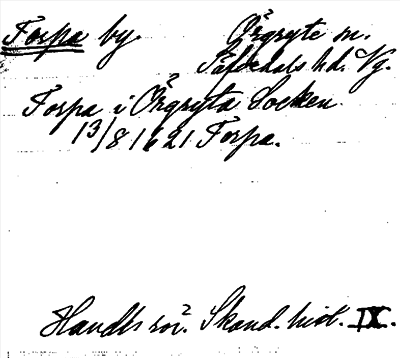 Torpa by. Örgryte sn.
Säfvedals hd. Vg.
Torpa i Örgryta Socken
13/8 1621 Torpa.
Handl:s rör. Skand. hist. IX.